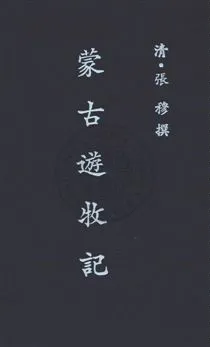 清・張穆撰
蒙古遊牧記